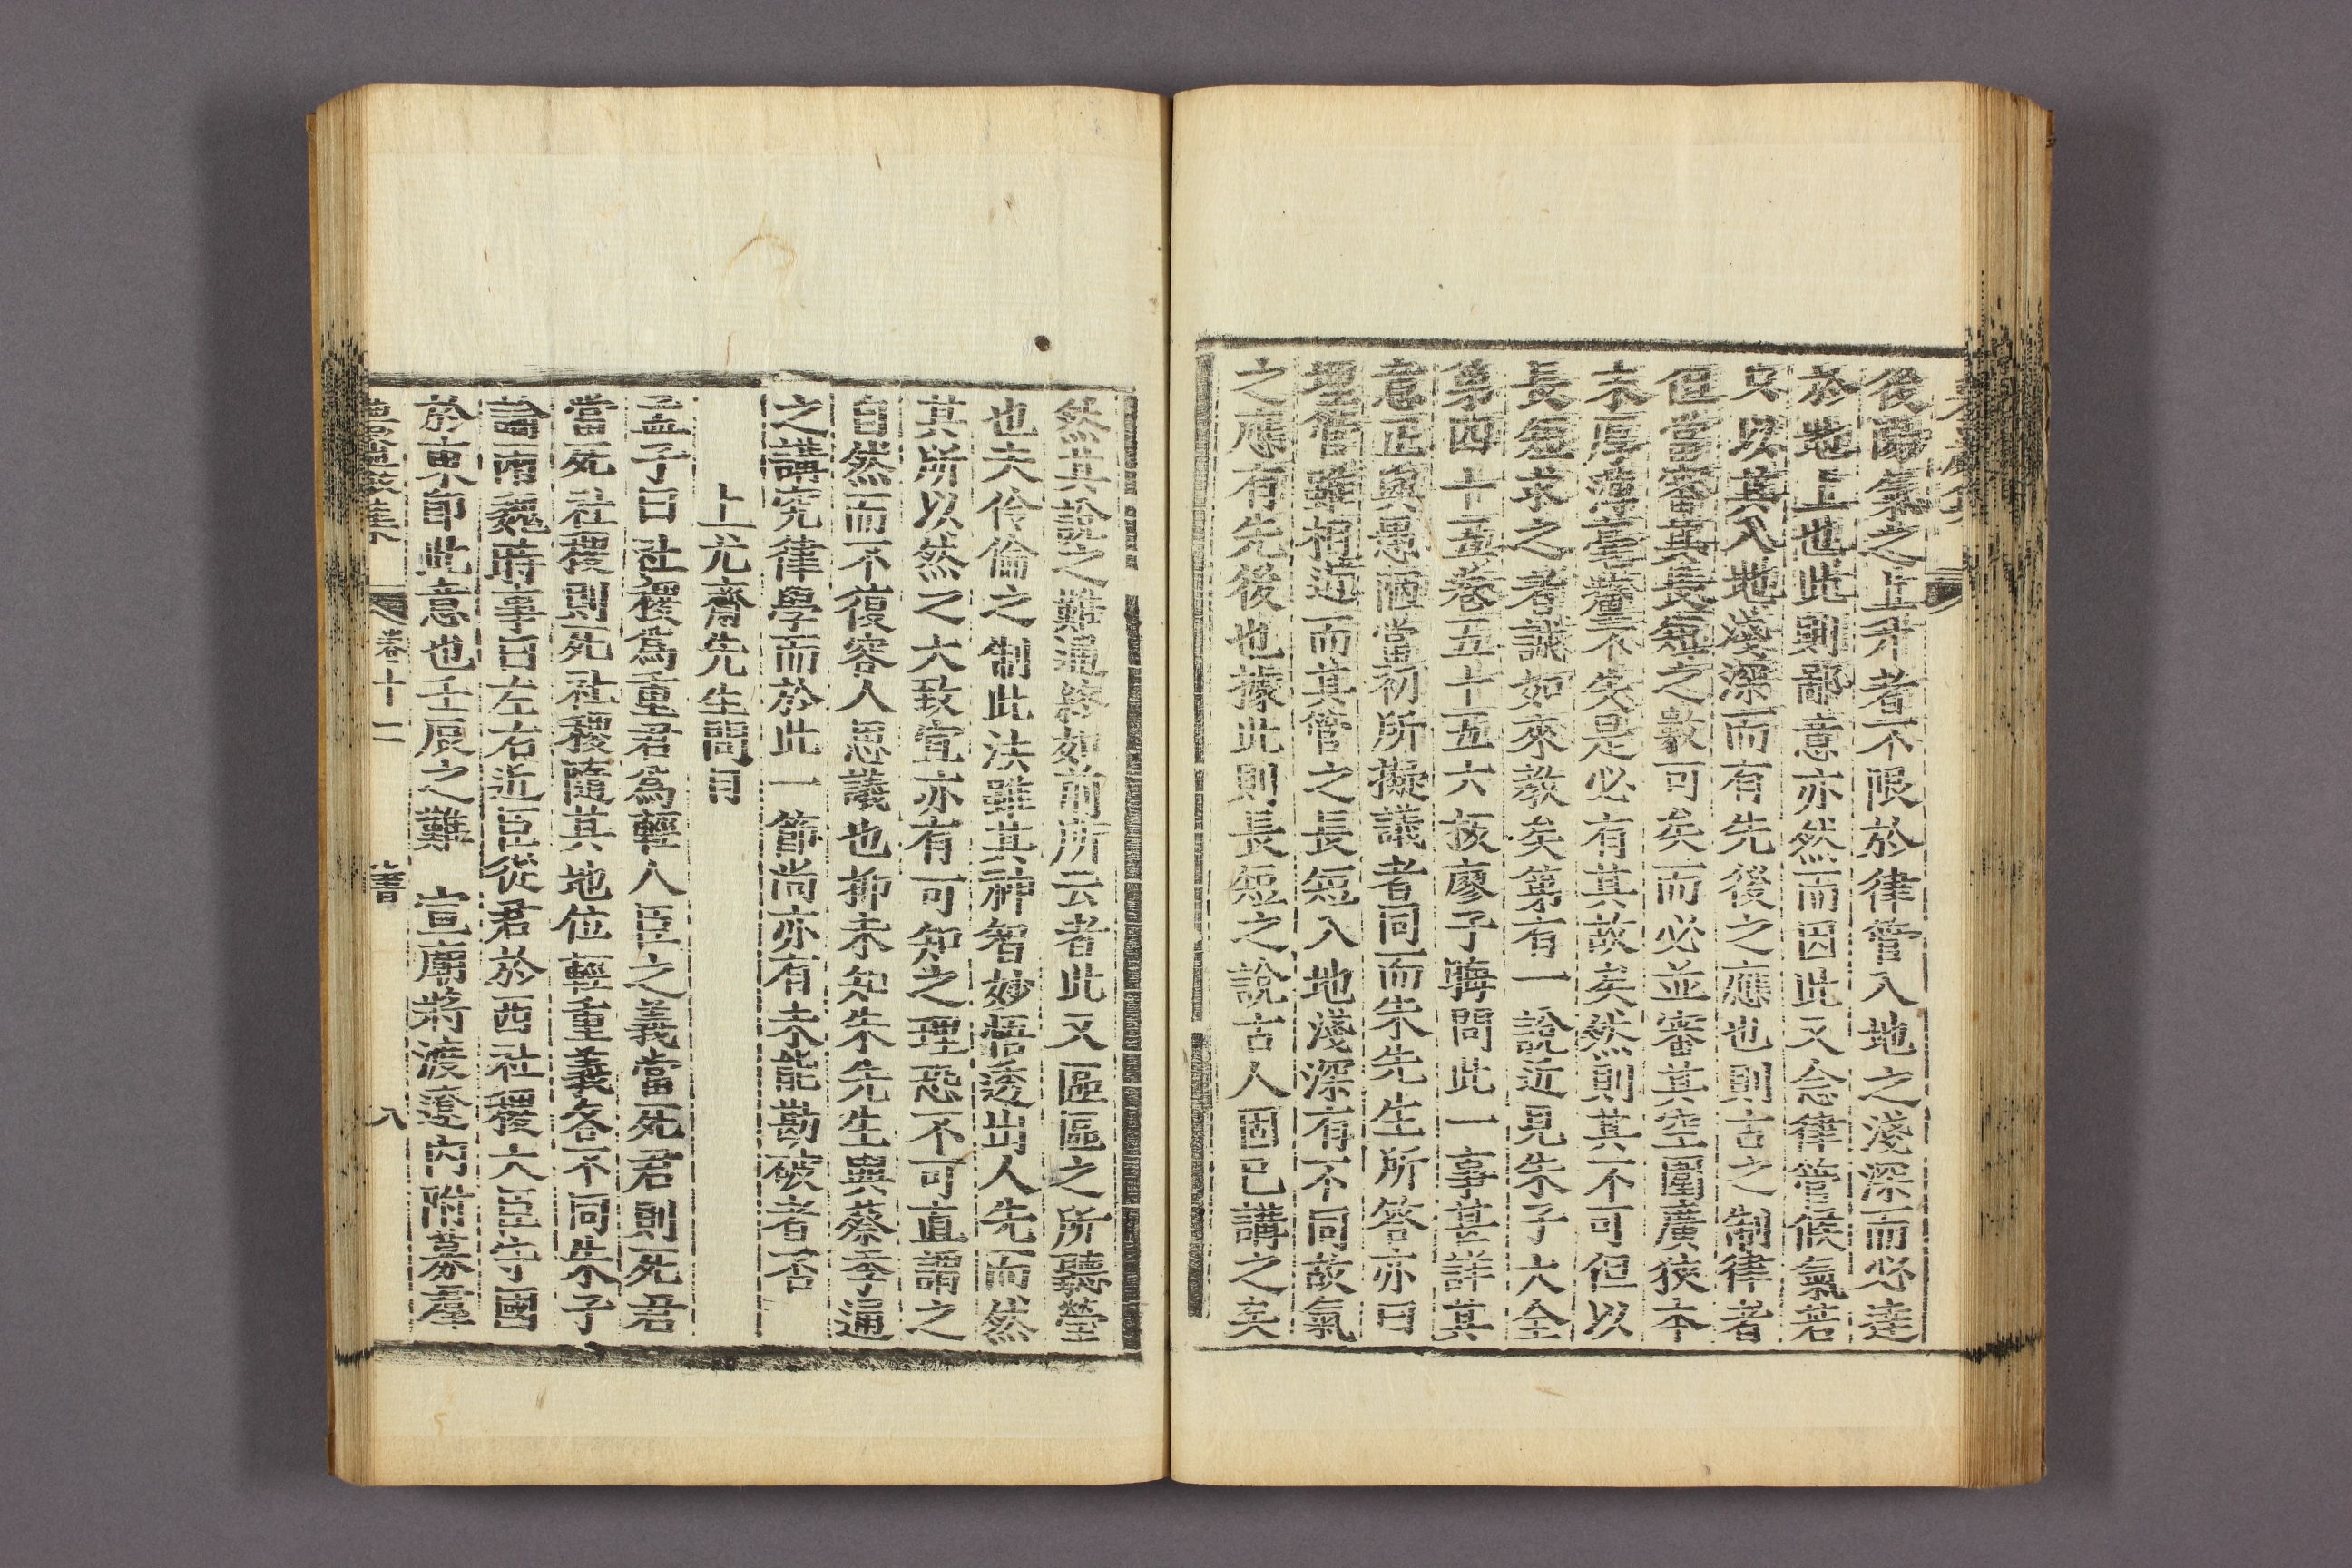 後陽氣之上升者不限於律管入地之淺深而必達
於地上也此則鄙意亦然而因此又念律管候氣若
只以其入地淺深而有先後之應也則古之制律者
但當審其長短之數可矣而必並審其空圍廣狹本
末厚薄毫釐不失是必有其故矣然則其不可但以
長短求之者誠如來敎矣第有一說近見朱子大全
第四十五卷五十五六板廖子晦問此一事甚詳其
意正與愚陋當初所擬議者同而朱先生所答亦曰
埋管雖相近而其管之長短入地淺深有不同故氣
之應有先後也據此則長短之說古人固已講之矣
然其說之難通終如前所云者此又區區之所聽瑩
也夫伶倫之制此法雖其神智妙悟透出人先而然
其所以然之大致宜亦有可知之理恐不可直謂之
自然而不復容人思議也抑未知朱先生與蔡季通
之講究律學而於此一節尚亦有未能勘破者否
上尤齋先生問目
孟子曰社稷爲重君爲輕人臣之義當死君則死君
當死社稷則死社稷隨其地位輕重義各不同朱子
論南魏時事曰左右近臣從君於西社稷大臣守國
於東卽此意也壬辰之難 宣廟將渡遼內附募羣
卷十二 書 八